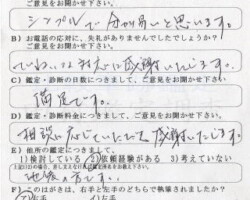 ご意見をお聞かせ下さい。
シンプルで分り易いと思います。
B) お電話の応対に、失礼がありませんでしたでしょうか?
ご意見をお聞かせ下さい。
ていねいな対応に感謝いたします。
C) 鑑定・診断の日数につきまして、ご意見をお聞かせ下さい。
満足です。
D) 鑑定・診断料金につきまして、ご意見をお聞かせ下さい。
相談に応じていただいて感謝いたします。
E) 他所の鑑定につきまして、
1)検討している 2)依頼経験がある 3)考えていない
です。
F) このはがきは、右手と左手のどちらで執筆されましたか?